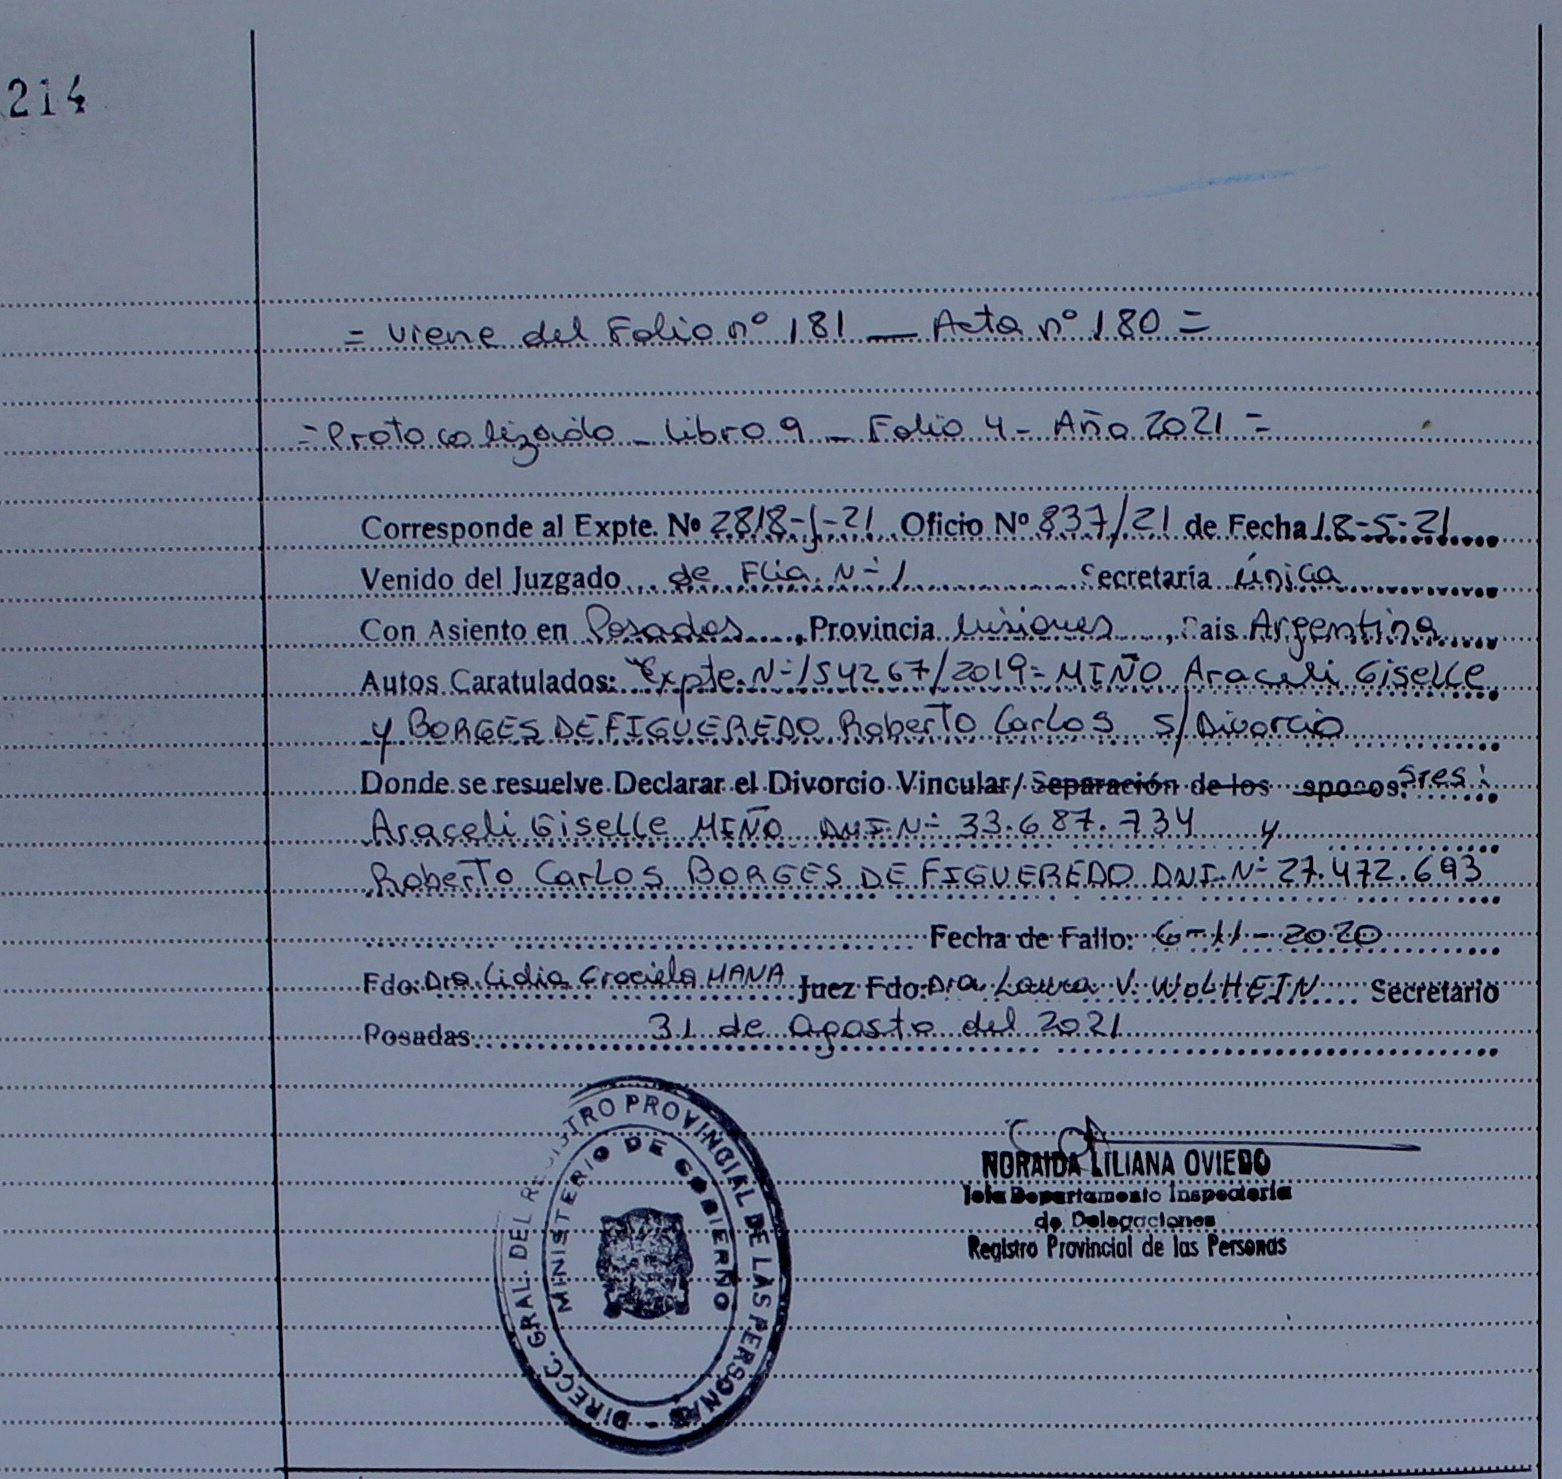 214
= Viene del Folio nº 181 — Acta nº 180 =
= Protocolizado - Libro 9 - Folio 4 - Año 2021 =
Corresponde al Expte. Nº 2818-J-21 Oficio Nº 837/21 de Fecha 18-5-21
Venido del Juzgado de Flia. Nº 1 Secretaría Única
Con Asiento en Posadas, Provincia Misiones, Pais Argentina
Autos Caratulados: "Expte. Nº 154267/2019 - MIÑO Araceli Giselle
y BORGES DE FIGUEREDO Roberto Carlos s/Divorcio
Donde se resuelve Declarar el Divorcio Vincular/ Separación de los sres:
Araceli Giselle MIÑO DNI. Nº 33.687.734 y
Roberto Carlos BORGES DE FIGUEREDO DNI. Nº 27.472.693
Fecha de Fallo: 6-11-2020
Fdo: Dra. Lidia Graciela Juez Fdo: Dra. Laura V. WOLHEIN Secretario
Posadas 31 de agosto del 2021
DIRECC. GRAL. DEL REGISTRO PROVINCIAL DE LAS PERSONAS -
MINISTERIO DE GOBIERNO
NORAIDA LILIANA OVIEDO
Jefa Departamento Inspectoria
de Delegaciones
Registro Provincial de las Personas